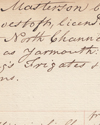 Masterson o
westoft, licens
North Channe
as Yarmouth
g's Frigates